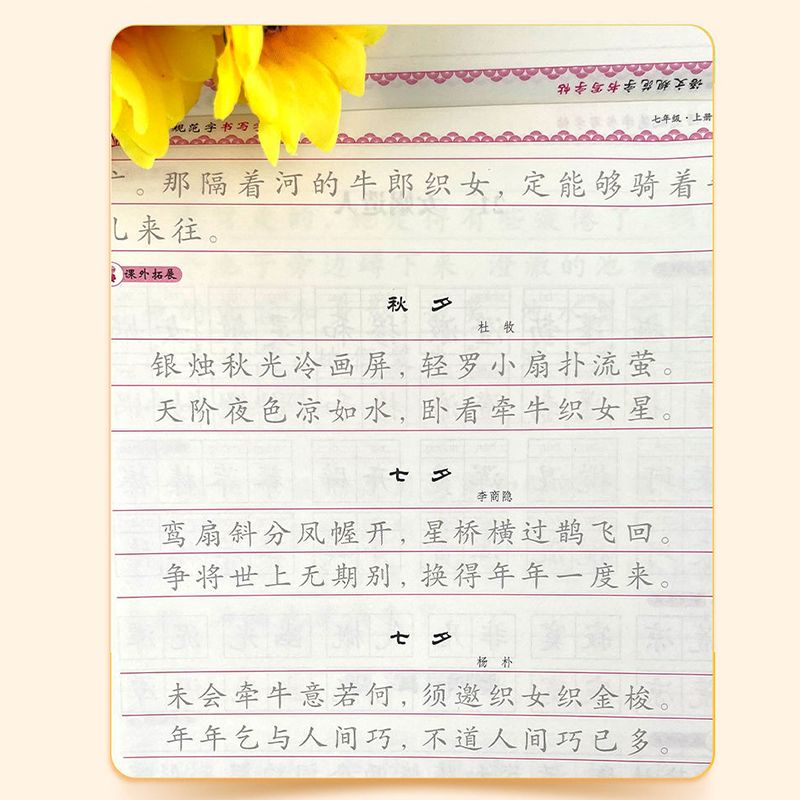 语文规范字书写字帖
规范字书写字
七年级·上册
。那隔着河的牛郎织女，定能够骑着
儿来往。
课外拓展
秋夕
杜牧
银烛秋光冷画屏，轻罗小扇扑流萤。
天阶夜色凉如水，卧看牵牛织女星。
七夕
李商隐
鸾扇斜分凤幄开，星桥横过鹊飞回。
争将世上无期别，换得年年一度来。
七夕
杨朴
未会牵牛意若何，须邀织女织金梭。
年年乞与人间巧，不道人间巧已多。